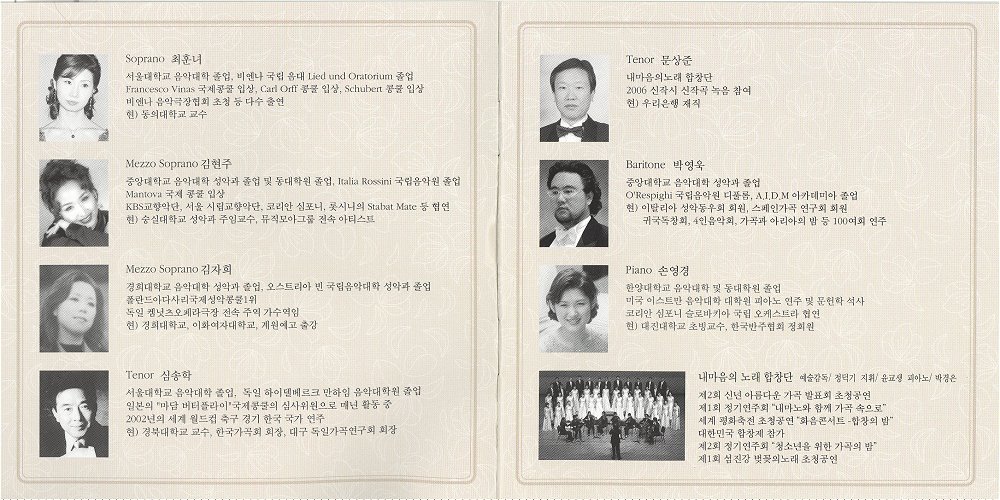 Soprano 최훈녀
서울대학교 음악대학 졸업, 비엔나 국립 음대 Lied und Oratorium 졸업
Francesco Vinas 국제콩쿨 입상, Carl Orff 콩쿨 입상, Schubert 콩쿨 입상
비엔나 음악극장협회 초청 등 다수 출연
현) 동의대학교 교수
Mezzo Soprano 김현주
중앙대학교 음악대학 성악과 졸업 및 동대학원 졸업, Italia Rossini 국립음악원 졸업
Mantova 국제 콩쿨 입상
KBS교향악단, 서울 시립교향악단, 코리안 심포니, 롯시니의 Stabat Mate 등 협연
현) 숭실대학교 성악과 주임교수, 뮤직모아그룹 전속 아티스트
Mezzo Soprano 김자희
경희대학교 음악대학 성악과 졸업, 오스트리아 빈 국립음악대학 성악과 졸업
폴란드아다사리국제성악콩쿨1위
독일 켐닛츠오페라극장 전속 주역 가수역임
현) 경희대학교, 이화여자대학교, 계원예고 출강
Tenor 심송학
서울대학교 음악대학 졸업, 독일 하이델베르크 만하임 음악대학원 졸업
일본의 "마담 버터플라이"국제콩쿨의 심사위원으로 매년 활동 중
2002년의 세계 월드컵 축구 경기 한국 국가 연주
현) 경북대학교 교수, 한국가곡회 회장, 대구 독일가곡연구회 회장
Tenor 문상준
내마음의노래 합창단
2006 신작시 신작곡 녹음 참여
현) 우리은행 재직
Baritone 박영욱
중앙대학교 음악대학 성악과 졸업
O'Respighi 국립음악원 디플롬, A.I.D.M 아카데미아 졸업
현) 이탈리아 성악동우회 회원, 스페인가곡 연구회 회원
귀국독창회, 4인음악회, 가곡과 아리아의 밤 등 100여회 연주
Piano 손영경
한양대학교 음악대학 및 동대학원 졸업
미국 이스트만 음악대학 대학원 피아노 연주 및 문헌학 석사
코리안 심포니 슬로바키아 국립 오케스트라 협연
현) 대진대학교 초빙교수, 한국반주협회 정회원
내마음의 노래 합창단 예술감독/ 정덕기 지휘/ 윤교생 피아노/ 박정은
제2회 신년 아름다운 가곡 발표회 초청공연
제1회 정기연주회 "내마노와 함께 가곡 속으로"
세계 평화축전 초청공연 "화음콘서트 -합창의 밤"
대한민국 합창제 참가
제2회 정기연주회 "청소년을 위한 가곡의 밤"
제1회 섬진강 벚꽃의노래 초청공연